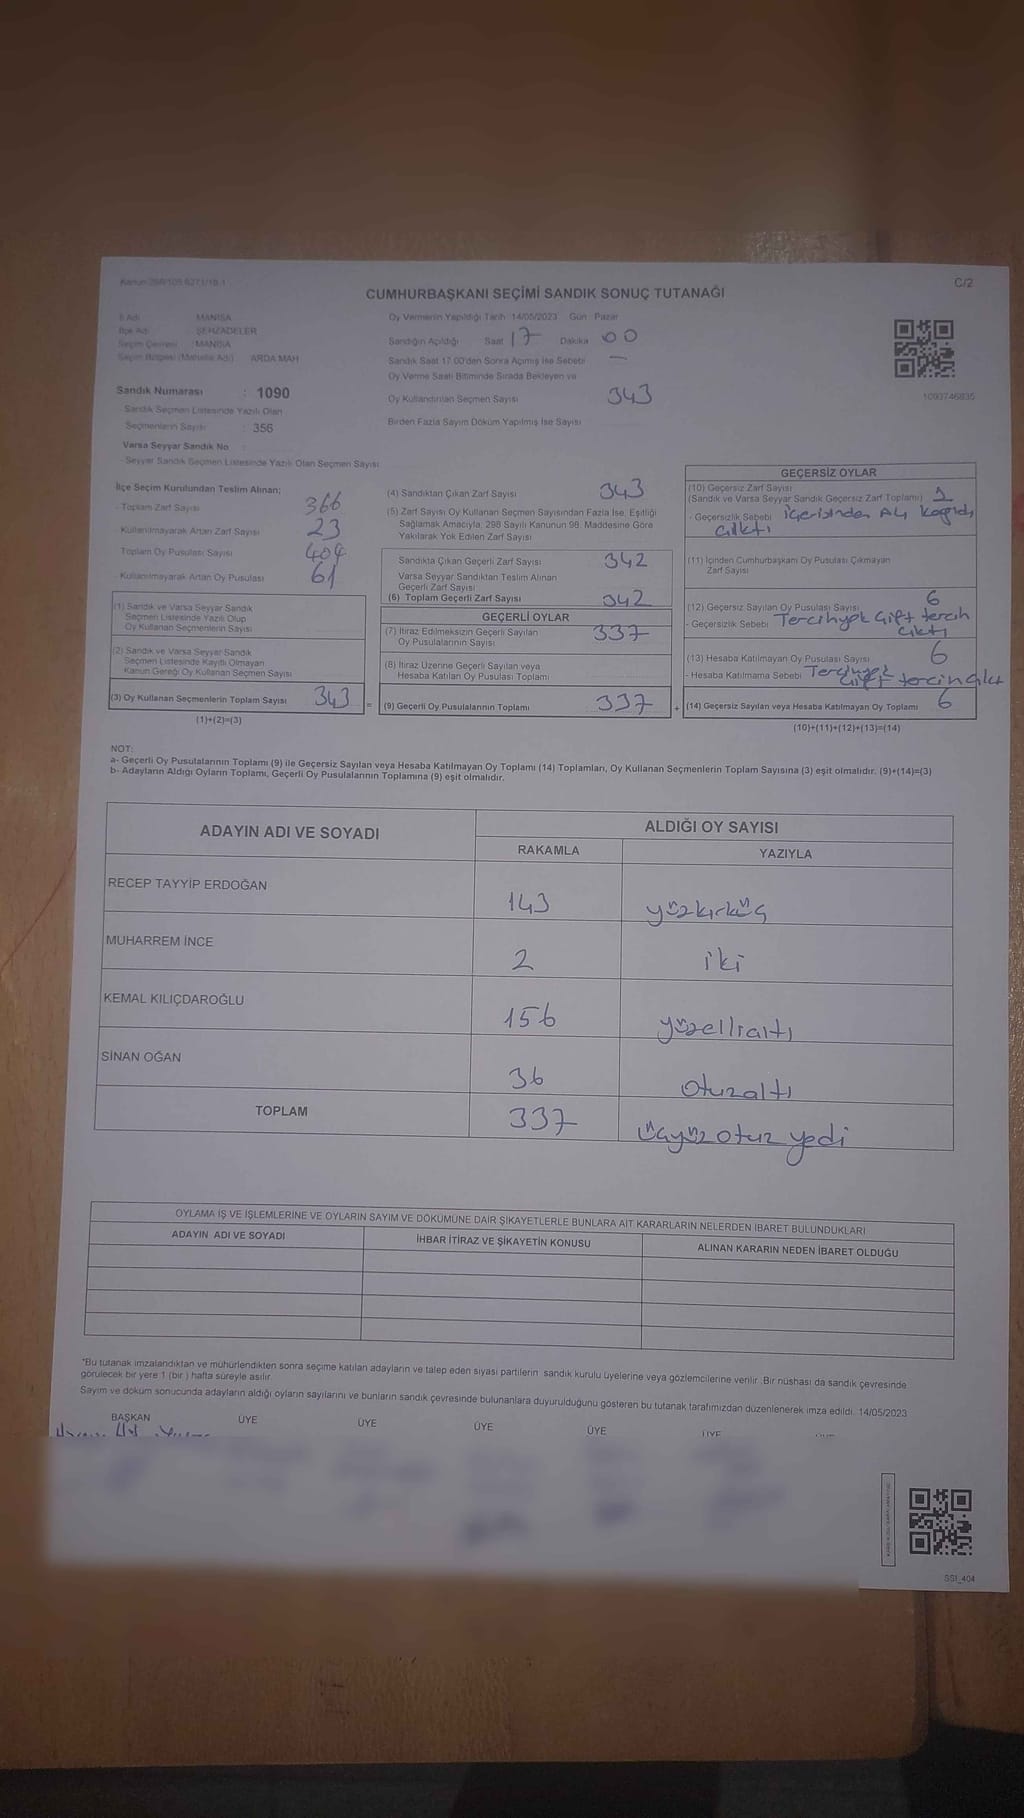 Kanun:298/105 6271/18-1
C/2
CUMHURBAŞKANI SEÇİMİ SANDIK SONUÇ TUTANAĞI
İl Adı : MANİSA
İlçe Adı : ŞEHZADELER
Seçim Çevresi : MANİSA
Seçim Bölgesi (Mahalle Adı) : ARDA MAH
Sandık Numarası : 1090
- Sandık Seçmen Listesinde Yazılı Olan
Seçmenlerin Sayısı : 356
Varsa Seyyar Sandık No :
- Seyyar Sandık Seçmen Listesinde Yazılı Olan Seçmen Sayısı
Oy Vermenin Yapıldığı Tarih 14/05/2023 Gün : Pazar
Sandığın Açıldığı Saat 17 Dakika 00
Sandık Saat 17.00'den Sonra Açılmış İse Sebebi —
Oy Verme Saati Bitiminde Sırada Bekleyen ve
Oy Kullandırılan Seçmen Sayısı 343
Birden Fazla Sayım Döküm Yapılmış İse Sayısı
1093746835
İlçe Seçim Kurulundan Teslim Alınan;
- Toplam Zarf Sayısı 366
- Kullanılmayarak Artan Zarf Sayısı 23
- Toplam Oy Pusulası Sayısı 404
- Kullanılmayarak Artan Oy Pusulası 61
(1) Sandık ve Varsa Seyyar Sandık
Seçmen Listesinde Yazılı Olup
Oy Kullanan Seçmenlerin Sayısı
(2) Sandık ve Varsa Seyyar Sandık
Seçmen Listesinde Kayıtlı Olmayan
Kanun Gereği Oy Kullanan Seçmen Sayısı
(3) Oy Kullanan Seçmenlerin Toplam Sayısı 343
(1)+(2)=(3)
=
(4) Sandıktan Çıkan Zarf Sayısı 343
(5) Zarf Sayısı Oy Kullanan Seçmen Sayısından Fazla İse, Eşitliği
Sağlamak Amacıyla, 298 Sayılı Kanunun 98. Maddesine Göre
Yakılarak Yok Edilen Zarf Sayısı
Sandıkta Çıkan Geçerli Zarf Sayısı 342
Varsa Seyyar Sandıktan Teslim Alınan
Geçerli Zarf Sayısı
(6) Toplam Geçerli Zarf Sayısı 342
GEÇERLİ OYLAR
(7) İtiraz Edilmeksizin Geçerli Sayılan
Oy Pusulalarının Sayısı 337
(8) İtiraz Üzerine Geçerli Sayılan veya
Hesaba Katılan Oy Pusulası Toplamı
(9) Geçerli Oy Pusulalarının Toplamı 337
+
GEÇERSİZ OYLAR
(10) Geçersiz Zarf Sayısı
(Sandık ve Varsa Seyyar Sandık Geçersiz Zarf Toplamı) 1
- Geçersizlik Sebebi içerisinden Alı kağıdı
çıktı
(11) İçinden Cumhurbaşkanı Oy Pusulası Çıkmayan
Zarf Sayısı
(12) Geçersiz Sayılan Oy Pusulası Sayısı 6
- Geçersizlik Sebebi Tercihyok Çift tercih
çıktı
(13) Hesaba Katılmayan Oy Pusulası Sayısı 6
- Hesaba Katılmama Sebebi Tercihyok
Çift tercih çıktı
(14) Geçersiz Sayılan veya Hesaba Katılmayan Oy Toplamı 6
(10)+(11)+(12)+(13)=(14)
NOT:
a- Geçerli Oy Pusulalarının Toplamı (9) ile Geçersiz Sayılan veya Hesaba Katılmayan Oy Toplamı (14) Toplamları, Oy Kullanan Seçmenlerin Toplam Sayısına (3) eşit olmalıdır. (9)+(14)=(3)
b- Adayların Aldığı Oyların Toplamı, Geçerli Oy Pusulalarının Toplamına (9) eşit olmalıdır.
ADAYIN ADI VE SOYADI
ALDIĞI OY SAYISI
RAKAMLA YAZIYLA
RECEP TAYYİP ERDOĞAN 143 yüzkırküç
MUHARREM İNCE 2 iki
KEMAL KILIÇDAROĞLU 156 yüzellialtı
SİNAN OĞAN 36 otuzaltı
TOPLAM 337 üçyüzotuz yedi
OYLAMA İŞ VE İŞLEMLERİNE VE OYLARIN SAYIM VE DÖKÜMÜNE DAİR ŞİKAYETLERLE BUNLARA AİT KARARLARIN NELERDEN İBARET BULUNDUKLARI
ADAYIN ADI VE SOYADI İHBAR İTİRAZ VE ŞİKAYETİN KONUSU ALINAN KARARIN NEDEN İBARET OLDUĞU
*Bu tutanak imzalandıktan ve mühürlendikten sonra seçime katılan adayların ve talep eden siyasi partilerin sandık kurulu üyelerine veya gözlemcilerine verilir .Bir nüshası da sandık çevresinde
görülecek bir yere 1 (bir ) hafta süreyle asılır.
Sayım ve döküm sonucunda adayların aldığı oyların sayılarını ve bunların sandık çevresinde bulunanlara duyurulduğunu gösteren bu tutanak tarafımızdan düzenlenerek imza edildi. 14/05/2023
BAŞKAN ÜYE ÜYE ÜYE ÜYE ÜYE
SSI_404